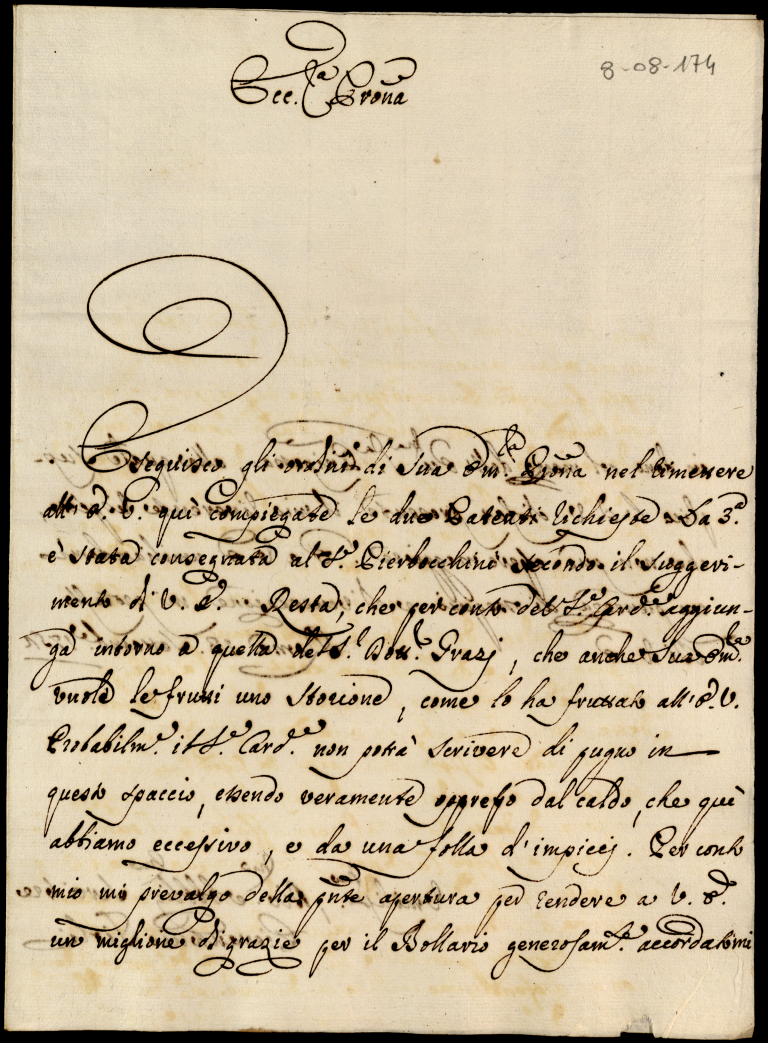 8-08-174
Ecc.za Prona
Eseguisco gli ordini di Sua Em.za Prona nel rimettere
all' E. V. quì compiegate le due Patenti richieste. La 3.a
è stata consegnata al S.r Pierbocchini secondo il suggeri-
mento di V. E. Resta, che per conto del S.r Card.le aggiun-
ga intorno a quella del S.r Dott.r Grazj, che anche Sua Em.za
vuole le frutti uno Storione, come lo ha fruttato all' E. V.
Probabilm.e il S.r Card.le non potrà scrivere di pugno in
questo spaccio, essendo veramente oppresso dal caldo, che quì
abbiamo eccessivo, e da una folla d'impiccj. Per conto
mio mi prevalgo della pnte apertura per rendere a V. E.
un miglione di grazie per il Bollario generosam.te accordatomi